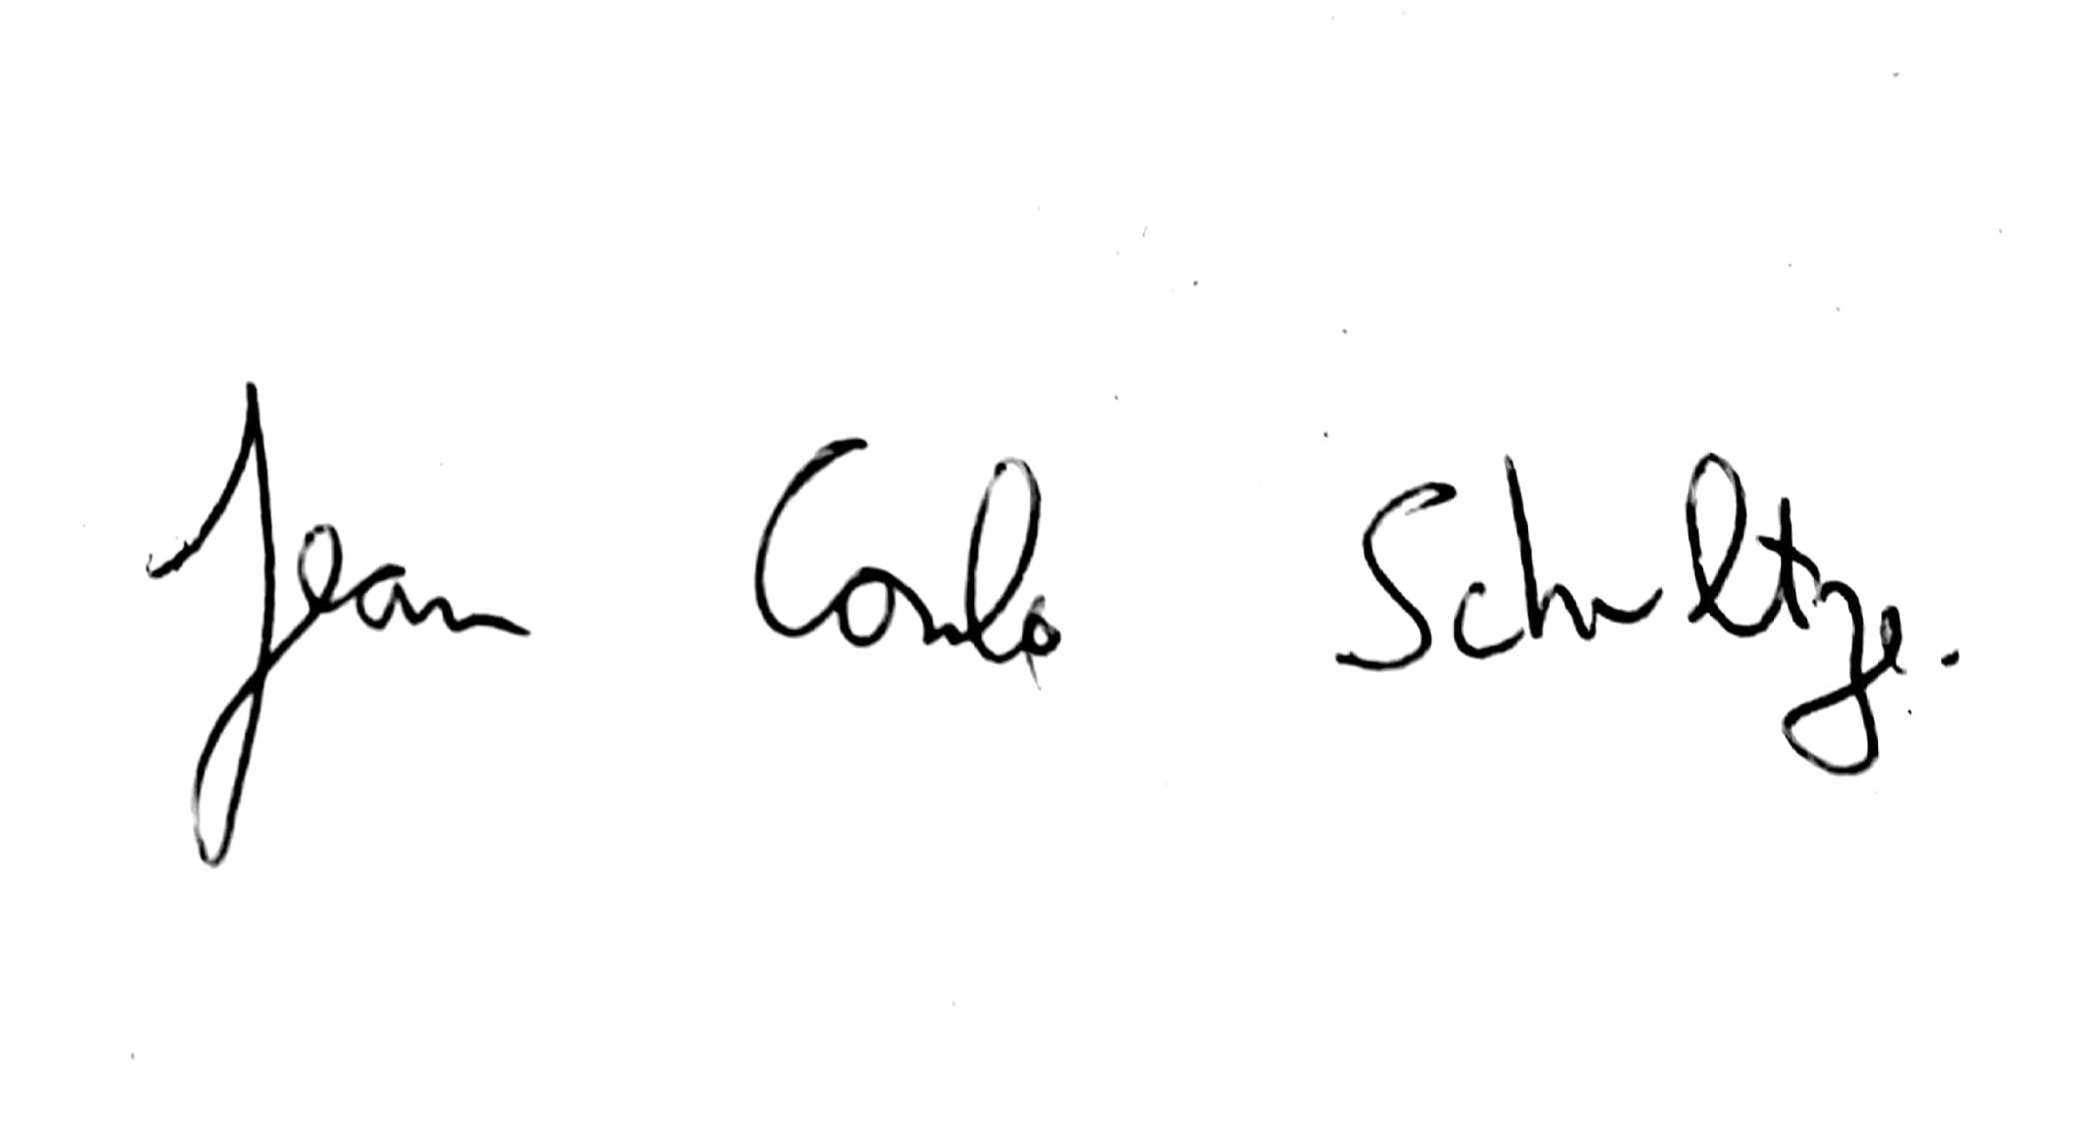 Jean Carlo Schultze.